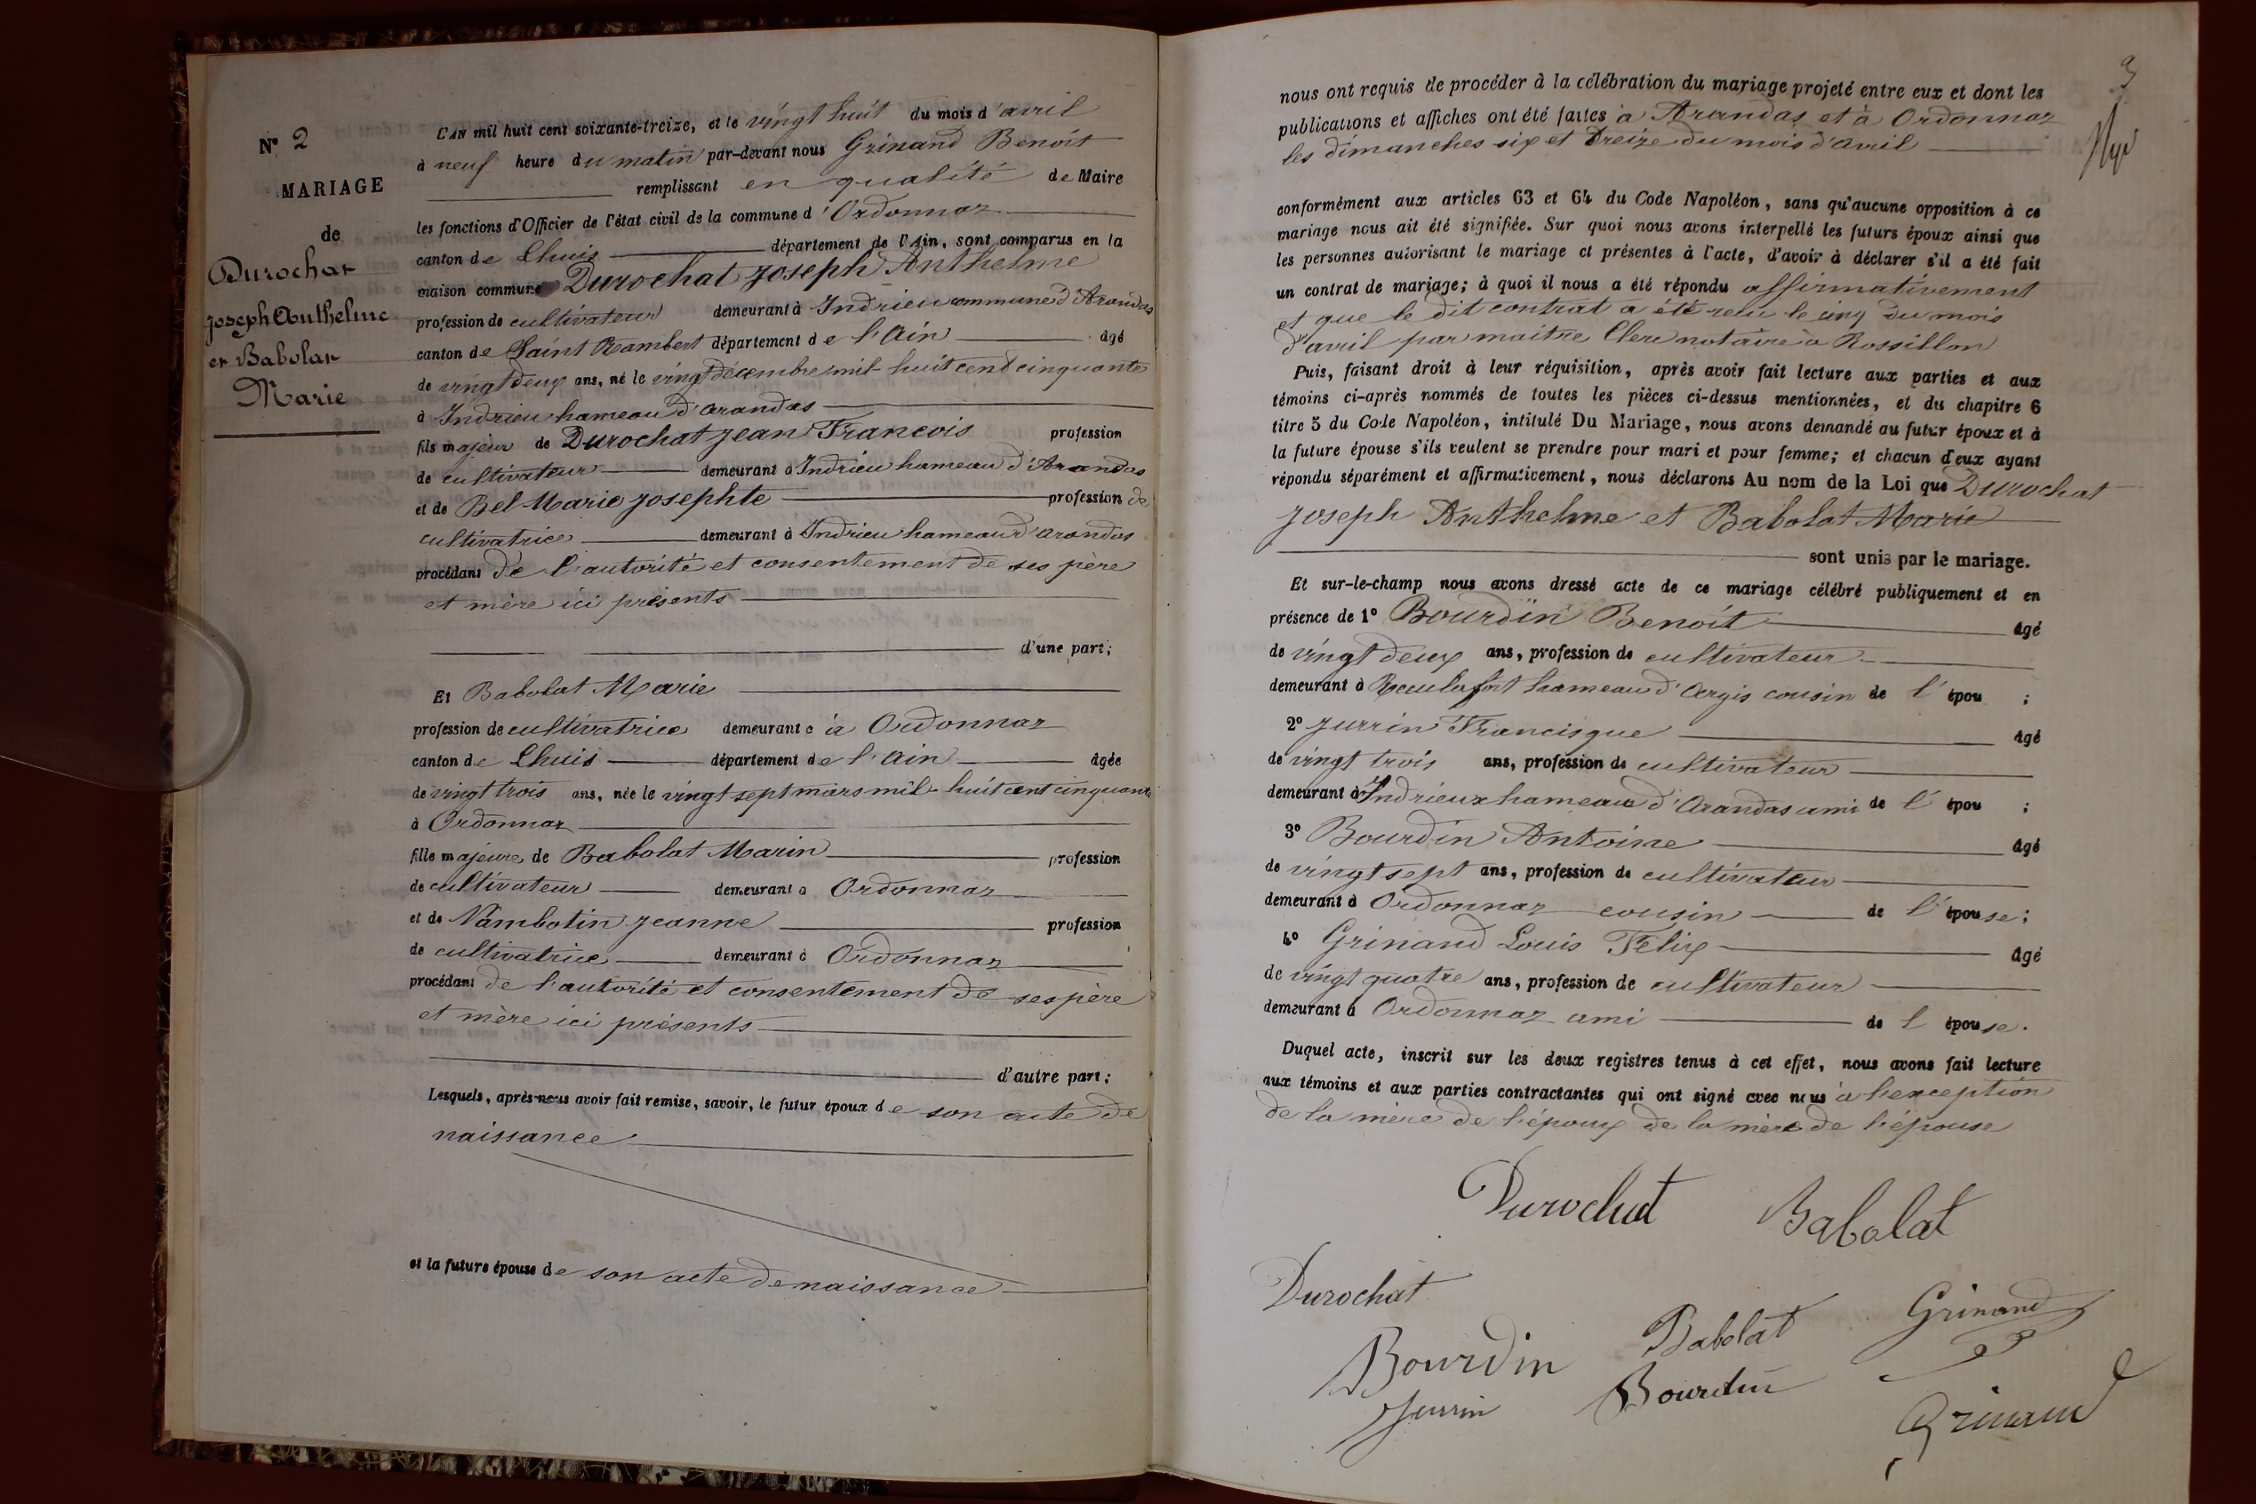 N° 2
MARIAGE
de
Durochat
Joseph Anthelme
et Babolat
Marie
L'AN mil huit cent soixante-treize, et le vingt huit du mois d'avril
à neuf heure du matin par-devant nous Grinand Benoit
remplissant en qualité de Maire
les fonctions d'Officier de l'état civil de la commune d'Ordonnaz
canton de Lhuis département de l'Ain, sont comparus en la
maison commune Durochat Joseph Anthelme
profession de cultivateur demeurant à Indrieu commune d'Arandas
canton de Saint Rambert département de l'Ain âgé
de vingt deux ans, né le vingt décembre mil huit cent cinquante
à Indrieu hameau d'arandas
fils majeur de Durochat Jean Francois profession
de cultivateur demeurant à Indrieu hameau d'Arandas
et de Bel Marie Josephte profession de
cultivatrice demeurant à Indrieu hameau d'arandas
procédant de l'autorité et consentement de ses père
et mère ici présents
d'une part;
Et Babolat Marie
profession de cultivatrice demeurant e à Ordonnaz
canton de Lhuis département de l'Ain âgée
de vingt trois ans, née le vingt sept mars mil huit cent cinquante
à Ordonnaz
fille majeure de Babolat Marin profession
de cultivateur demeurant à Ordonnaz
et de Nambotin Jeanne profession
de cultivatrice demeurant à Ordonnaz
procédant de l'autorité et consentement de ses père
et mère ici présents
d'autre part;
Lesquels, après nous avoir fait remise, savoir, le futur époux de son acte de
naissance
et la future épouse de son acte de naissance
3
nous ont requis de procéder à la célébration du mariage projeté entre eux et dont les
publications et affiches ont été faites à Arandas et à Ordonnaz
les dimanches six et treize du mois d'avril
conformément aux articles 63 et 64 du Code Napoléon, sans qu'aucune opposition à ce
mariage nous ait été signifiée. Sur quoi nous avons interpellé les futurs époux ainsi que
les personnes autorisant le mariage et présentes à l'acte, d'avoir à déclarer s'il a été fait
un contrat de mariage; à quoi il nous a été répondu affirmativement
et que le dit contrat a été reçu le cinq du mois
d'avril par maitre Clerc notaire à Rossillon
Puis, faisant droit à leur réquisition, après avoir fait lecture aux parties et aux
témoins ci-après nommés de toutes les pièces ci-dessus mentionnées, et du chapitre 6
titre 5 du Code Napoléon, intitulé Du Mariage, nous avons demandé au futur époux et à
la future épouse s'ils veulent se prendre pour mari et pour femme; et chacun d'eux ayant
répondu séparément et affirmativement, nous déclarons Au nom de la Loi que Durochat
Joseph Anthelme et Babolat Marie
sont unis par le mariage.
Et sur-le-champ nous avons dressé acte de ce mariage célébré publiquement et en
présence de 1° Bourdin Benoit âgé
de vingt deux ans, profession de cultivateur
demeurant à hameau d'Argis cousin de l'épou ;
2° Jurrin Francisque âgé
de vingt trois ans, profession de cultivateur
demeurant à Indrieux hameau d'Arandas ami de l'épou ;
3° Bourdin Antoine âgé
de vingt sept ans, profession de cultivateur
demeurant à Ordonnaz cousin de l'épouse;
4° Grinand Louis Felix âgé
de vingt quatre ans, profession de cultivateur
demeurant à Ordonnaz ami de l'épouse.
Duquel acte, inscrit sur les deux registres tenus à cet effet, nous avons fait lecture
aux témoins et aux parties contractantes qui ont signé avec nous à l'exception
de la mère de l'époux de la mère de l'épouse
Durochat Babolat
Durochat
Bourdin Babolat Grinand
Jurrin Bourdin Grinand